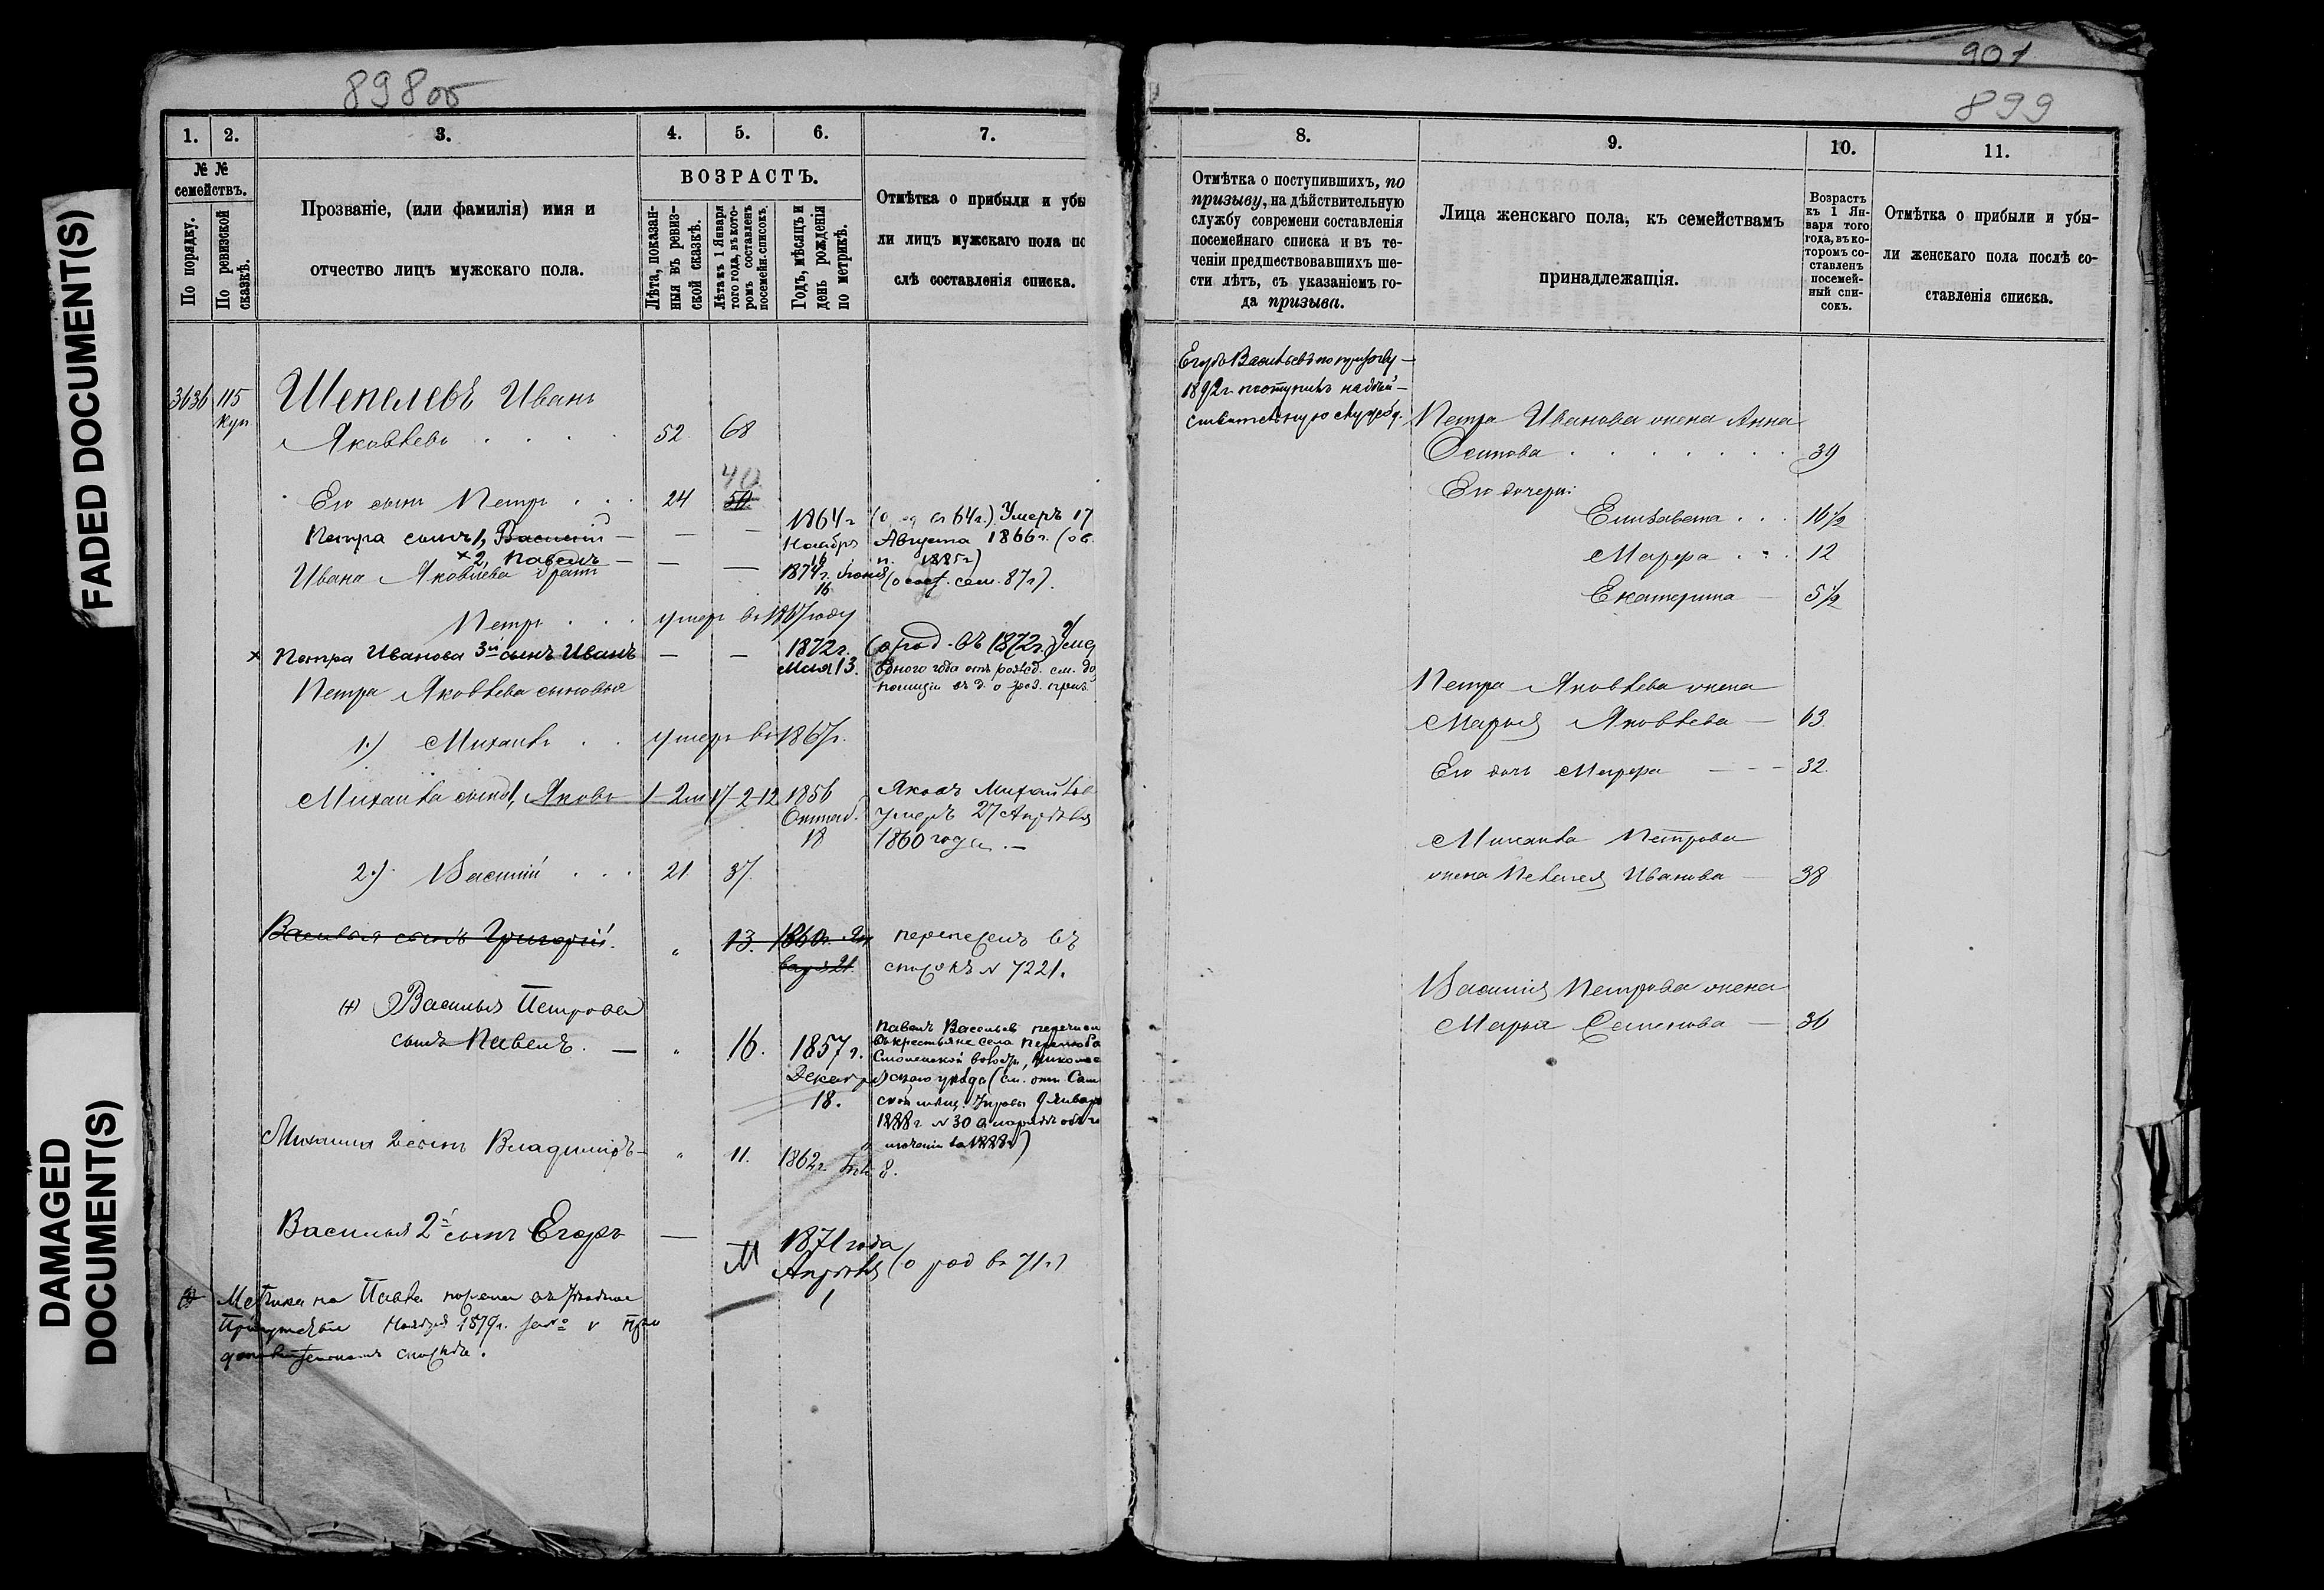 FADED DOCUMENT(S)
DAMAGED
DOCUMENT(S)
898об
1.
2.
3.
4.
5.
6.
7.
№ №
семействъ.
По порядку.
По ревизской
сказкѣ.
Прозваніе, (или фамилія) имя и
отчество лицъ мужскаго пола.
ВОЗРАСТЪ.
Лѣта, показан-
ныя въ ревиз-
ской сказкѣ.
Лѣта къ 1 Января
того года, въ кото-
ромъ составленъ
посемейн. списокъ.
Годъ, мѣсяцъ и
день рожденія
по метрикѣ.
Отмѣтка о прибыли и убы
ли лицъ мужскаго пола по
слѣ составленія списка.
3636 115 Шепелевъ Иванъ
куп
Яковлевъ 52. 68
40
Его сынъ Петръ 24 50.
Петра сынъ 1, Василій — — — 1864г Ноября 16
Умеръ 17
Августа 1866г.
×2, Павелъ — — — 1874г. Іюня 16 сем. 87г).
Ивана Яковлева братъ
Петръ умеръ въ 1867 году
× Петра Иванова 3й сынъ Иванъ — — 1872г. Мая 13.
(о род. въ 1872г.)
Петра Яковлева сыновья
1.) Михаилъ умеръ въ 1867г.
Михаила сынъ 1, Яковъ 1-2м 17-2-12 1856
Октяб.
18
Яковъ Михайлов
умеръ 27 Апрѣля
1860 года. —
2.) Василій 21. 37.
Василья сынъ Григорій. " 13. 1860г. Ян
варя 21.
перенесенъ въ
списокъ № 7221.
(+) Василья Петрова
сынъ Павелъ. — " 16. 1857г.
Декабря
18.
Павелъ Васильев перечислен
въ крестьяне села
Смоленской волости,
уѣзда (см. отн. Сам
Управы 9 Января
1888г № 30
въ 1888г)
Михаила 2 сынъ Владиміръ — " 11. 1862г. 8.
Василья 2й сынъ Егоръ — 1871 года
Апрѣля (о род въ 71г)
1
Метрика на Павла
Ноября 1879г.
спискѣ.
901
899
8.
9.
10.
11.
Отмѣтка о поступившихъ, по
призыву, на дѣйствительную
службу современи составленія
посемейнаго списка и въ те-
ченіи предшествовавшихъ ше-
сти лѣтъ, съ указаніемъ го-
да призыва.
Лица женскаго пола, къ семействамъ
принадлежащія.
Возрастъ
къ 1 Ян-
варя того
года, въ ко-
торомъ со-
ставленъ
посемей-
ный спи-
сокъ.
Отмѣтка о прибыли и убы-
ли женскаго пола послѣ со-
ставленія списка.
Егоръ Васильевъ по призыву —
1892г. поступилъ на дѣй —
ствительную службу.
Петра Иванова жена Анна
Осипова 39
Его дочери:
Елизавета 16 1/2
Марѳа 12
Екатерина — 5 1/2
Петра Яковлева жена
Марья Яковлева — 63.
Его дочь Марѳа — 32.
Михаила Петрова
жена Пелагея Иванова — 38
Василія Петрова жена
Марья Семенова — 36